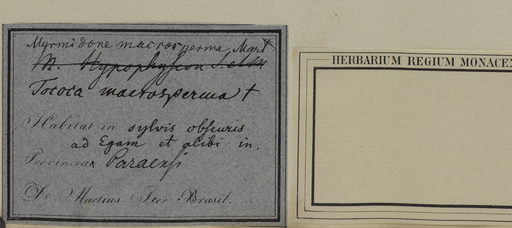 Myrmidone macrosperma, Mart
M. Hypophyseon
Tococa macrosperma †
Habitat in sylvis obscuris
ad Egam et alibi in.
Provinciae Paraensi
Dr Martius Iter Brasil.
HERBARIUM REGIUM MONACEN